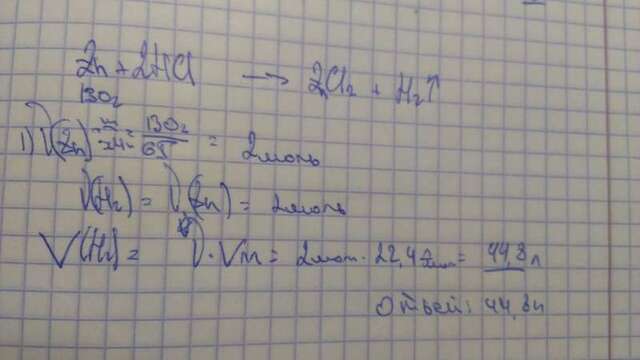 Zn + 2HCl → ZnCl₂ + H₂↑
130г
1) ν(Zn) = m/M = 130г/65 = 2моль
ν(H₂) = ν(Zn) = 2моль
V(H₂) = ν · Vm = 2мол · 22,4 л/моль = 44,8л
Ответ: 44,8л